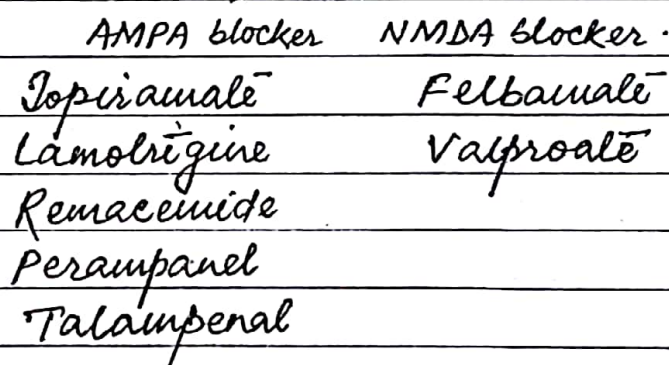 AMPA blocker NMDA blocker.
Topiramate Felbamate
Lamotrigine Valproate
Remacemide
Perampanel
Talampenal